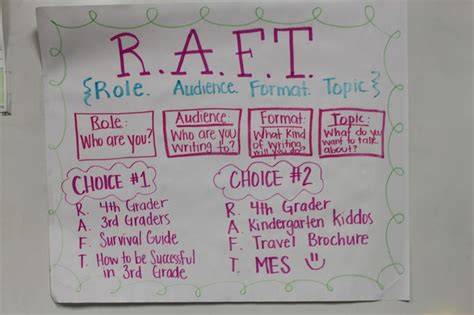 R.A.F.T.
{Role. Audience. Format. Topic.}
Role:
Who are you?
Audience:
Who are you
writing to?
Format:
What kind
of writing
will you do?
Topic:
What do you
want to talk
about?
CHOICE #1
R. 4th Grader
A. 3rd Graders
F. Survival Guide
T. How to be Successful
in 3rd Grade
CHOICE #2
R. 4th Grader
A. Kindergarten kiddos
F. Travel Brochure
T. MES